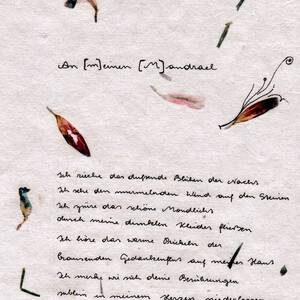 An [m]einen [M]andrael
Ich rieche das duftende Blühen der Nachs
Ich sehe den murmelnden Wind auf den Steinen
Ich spüre das schöne Mondlicht
durch meine dunklen Kleider fliessen
Ich höre das warme Prickeln der
brausenden Gedankenflut auf meiner Haut
Ich merke wie sich deine Berührungen
in meinem Herzen niederlassen